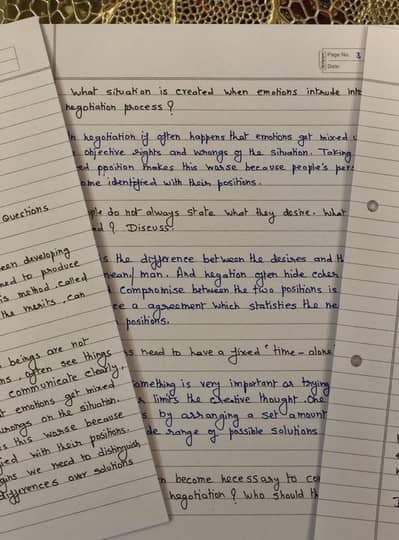 Page No. 3
Date:
What situation is created when emotions intrude into
negotiation process?
In negotiation if often happens that emotions get mixed
objective rights and wrongs of the situation. Taking
ed ppoition makes this worse because people's
ome identified with their positions.
ple do not always state what they desire. What
d? Discuss.
s the difference between the desires and
mean/man. And hegation often hide
compromise between the two positions is
ee a agreement which statisties the ne
positions.
s need to have a fixed "time-alone
omething is very important as trying
limits the creative thought. One
s by arranging a set amount
de range of possible solutions
n become necessary to co
negotiation? Who should th
Questions
een developing
ned to produce
is method called
the merits, can
beings are not
ms, often see things
communicate clearly.
t emotions get mixed
wrongs on the situation.
s this worse because
ied with their positions.
gins we need to distinguish
differences over solutions